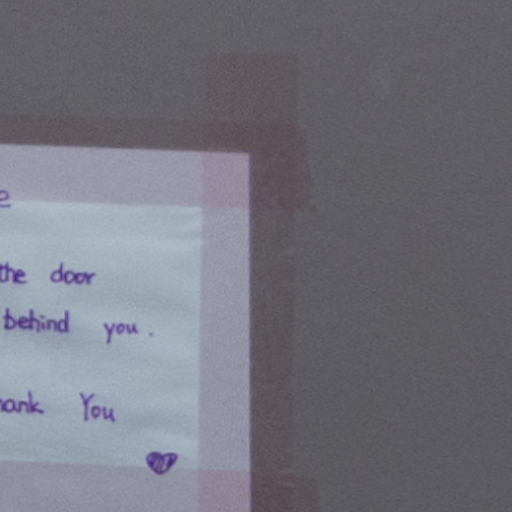 the door
behind you.
You